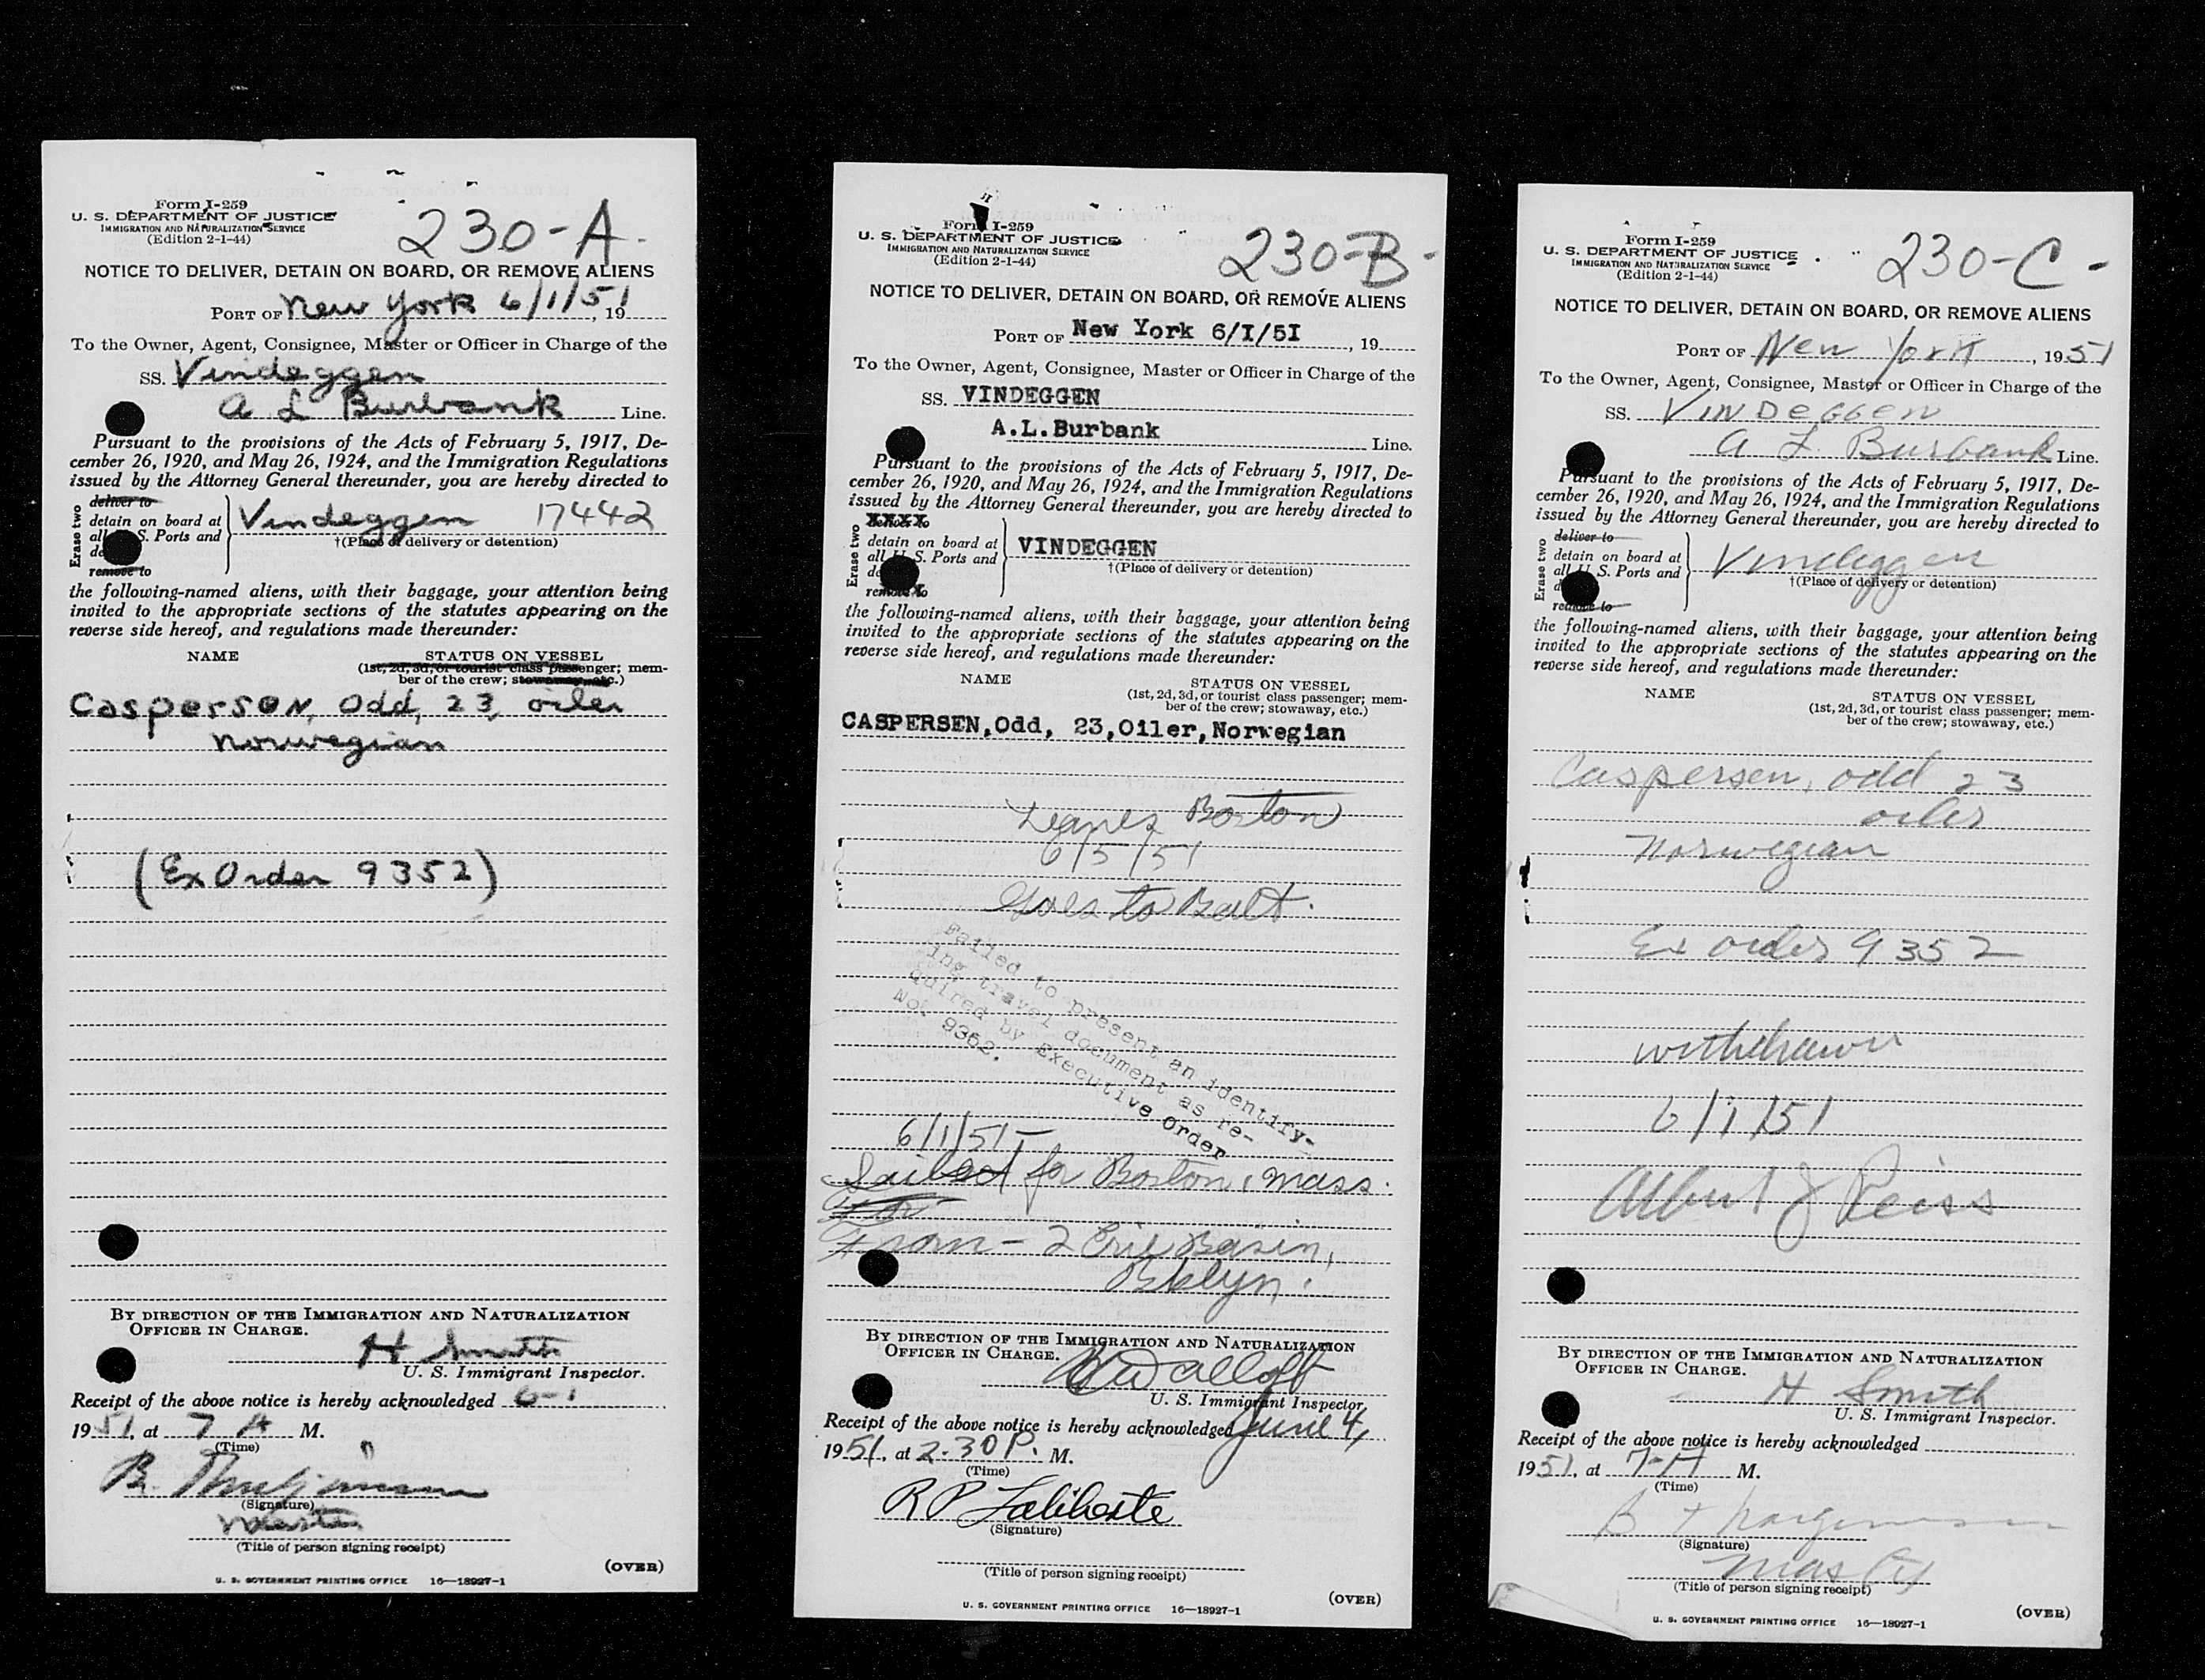 Form I-259
U. S. DEPARTMENT OF JUSTICE
IMMIGRATION AND NATURALIZATION SERVICE
(Edition 2-1-44)
230-A.
NOTICE TO DELIVER, DETAIN ON BOARD, OR REMOVE ALIENS
PORT OF New York 6/1/51, 19
To the Owner, Agent, Consignee, Master or Officer in Charge of the
SS. Vindeggen
A L Burbank Line.
Pursuant to the provisions of the Acts of February 5, 1917, De-
cember 26, 1920, and May 26, 1924, and the Immigration Regulations
issued by the Attorney General thereunder, you are hereby directed to
Erase two
deliver to
detain on board at
all S. Ports and
de
remove to
Vindeggen 17442
†(Place of delivery or detention)
the following-named aliens, with their baggage, your attention being
invited to the appropriate sections of the statutes appearing on the
reverse side hereof, and regulations made thereunder:
NAME
STATUS ON VESSEL
(1st, 2d, 3d, or tourist class passenger; mem-
ber of the crew; stowaway, etc.)
Caspersen, Odd, 23, oiler
norwegian
(Ex Order 9352)
BY DIRECTION OF THE IMMIGRATION AND NATURALIZATION
OFFICER IN CHARGE.
H Smith
U. S. Immigrant Inspector.
Receipt of the above notice is hereby acknowledged 6-1
1951, at 7 A M.
(Time)
B.
(Signature)
Master
(Title of person signing receipt)
(OVER)
U. S. GOVERNMENT PRINTING OFFICE 16—18927-1
Form I-259
U. S. DEPARTMENT OF JUSTICE
IMMIGRATION AND NATURALIZATION SERVICE
(Edition 2-1-44)
230-B-
NOTICE TO DELIVER, DETAIN ON BOARD, OR REMOVE ALIENS
PORT OF New York 6/I/5I, 19
To the Owner, Agent, Consignee, Master or Officer in Charge of the
SS. VINDEGGEN
A.L.Burbank Line.
Pursuant to the provisions of the Acts of February 5, 1917, De-
cember 26, 1920, and May 26, 1924, and the Immigration Regulations
issued by the Attorney General thereunder, you are hereby directed to
Erase two
XXXX
detain on board at
all U. S. Ports and
de
remove to
VINDEGGEN
†(Place of delivery or detention)
the following-named aliens, with their baggage, your attention being
invited to the appropriate sections of the statutes appearing on the
reverse side hereof, and regulations made thereunder:
NAME
STATUS ON VESSEL
(1st, 2d, 3d, or tourist class passenger; mem-
ber of the crew; stowaway, etc.)
CASPERSEN,Odd, 23,Oiler,Norwegian
Leaves Boston
6/5/51
Goes to Balt.
Failed to present an identify-
ing travel document as re-
quired by Executive Order
No. 9352.
6/1/51-
Sailed for Boston, Mass.
From - 2 Erie Basin,
Bklyn.
BY DIRECTION OF THE IMMIGRATION AND NATURALIZATION
OFFICER IN CHARGE.
U. S. Immigrant Inspector.
Receipt of the above notice is hereby acknowledged June 4,
1951, at 2.30 P. M.
(Time)
R P Laliberte
(Signature)
(Title of person signing receipt)
(OVER)
U. S. GOVERNMENT PRINTING OFFICE 16—18927-1
Form I-259
U. S. DEPARTMENT OF JUSTICE
IMMIGRATION AND NATURALIZATION SERVICE
(Edition 2-1-44)
230-C-
NOTICE TO DELIVER, DETAIN ON BOARD, OR REMOVE ALIENS
PORT OF New York, 1951
To the Owner, Agent, Consignee, Master or Officer in Charge of the
SS. VINDEGGEN
A L Burbank Line.
Pursuant to the provisions of the Acts of February 5, 1917, De-
cember 26, 1920, and May 26, 1924, and the Immigration Regulations
issued by the Attorney General thereunder, you are hereby directed to
Erase two
deliver to
detain on board at
all U. S. Ports and
d
remove to
Vindeggen
†(Place of delivery or detention)
the following-named aliens, with their baggage, your attention being
invited to the appropriate sections of the statutes appearing on the
reverse side hereof, and regulations made thereunder:
NAME
STATUS ON VESSEL
(1st, 2d, 3d, or tourist class passenger; mem-
ber of the crew; stowaway, etc.)
Caspersen, Odd 23
oiler
Norwegian
Ex order 9352
withdrawn
6/1/51
Albert J Reiss
BY DIRECTION OF THE IMMIGRATION AND NATURALIZATION
OFFICER IN CHARGE.
H Smith
U. S. Immigrant Inspector.
Receipt of the above notice is hereby acknowledged
1951, at 7-A M.
(Time)
B
(Signature)
Master
(Title of person signing receipt)
(OVER)
U. S. GOVERNMENT PRINTING OFFICE 16—18927-1